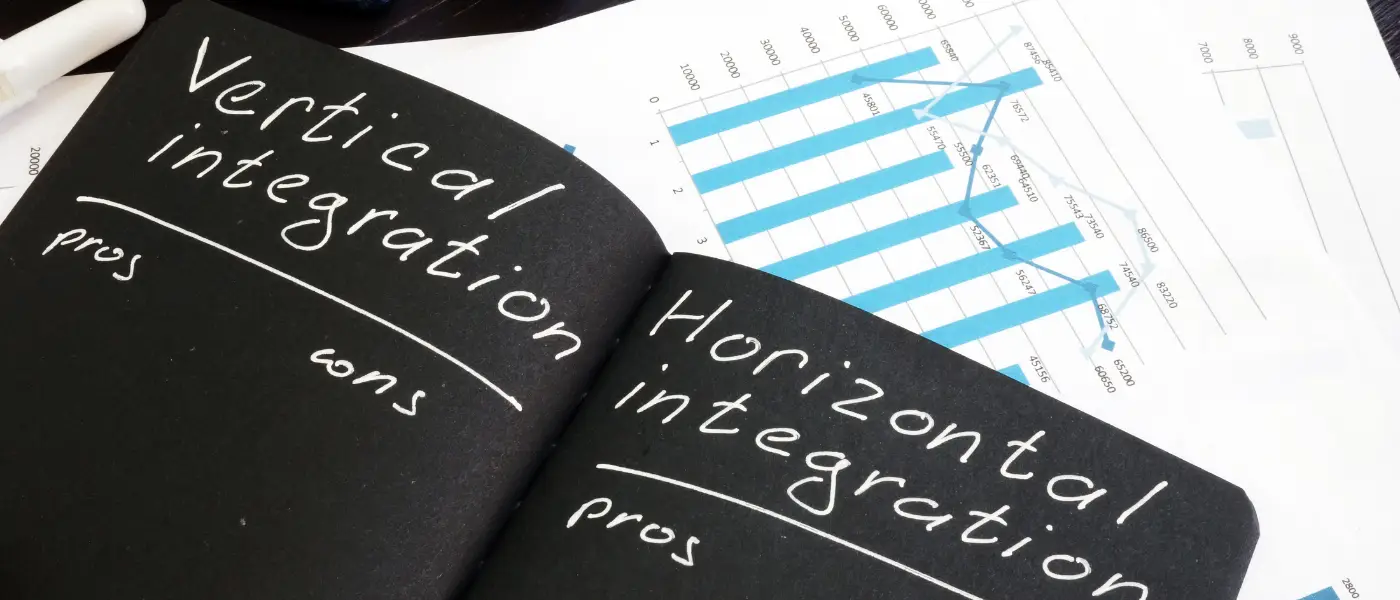 Vertical
integration
pros
cons
Horizontal
integration
pros
0
10000
20000
30000
40000
50000
60000
1
2
3
65840
87456
85410
45801
76572
55470
55500
62351
69440
64510
52367
75543
73540
86500
56247
74540
83220
68752
65200
60650
45156
7000
8000
9000
20000
2800